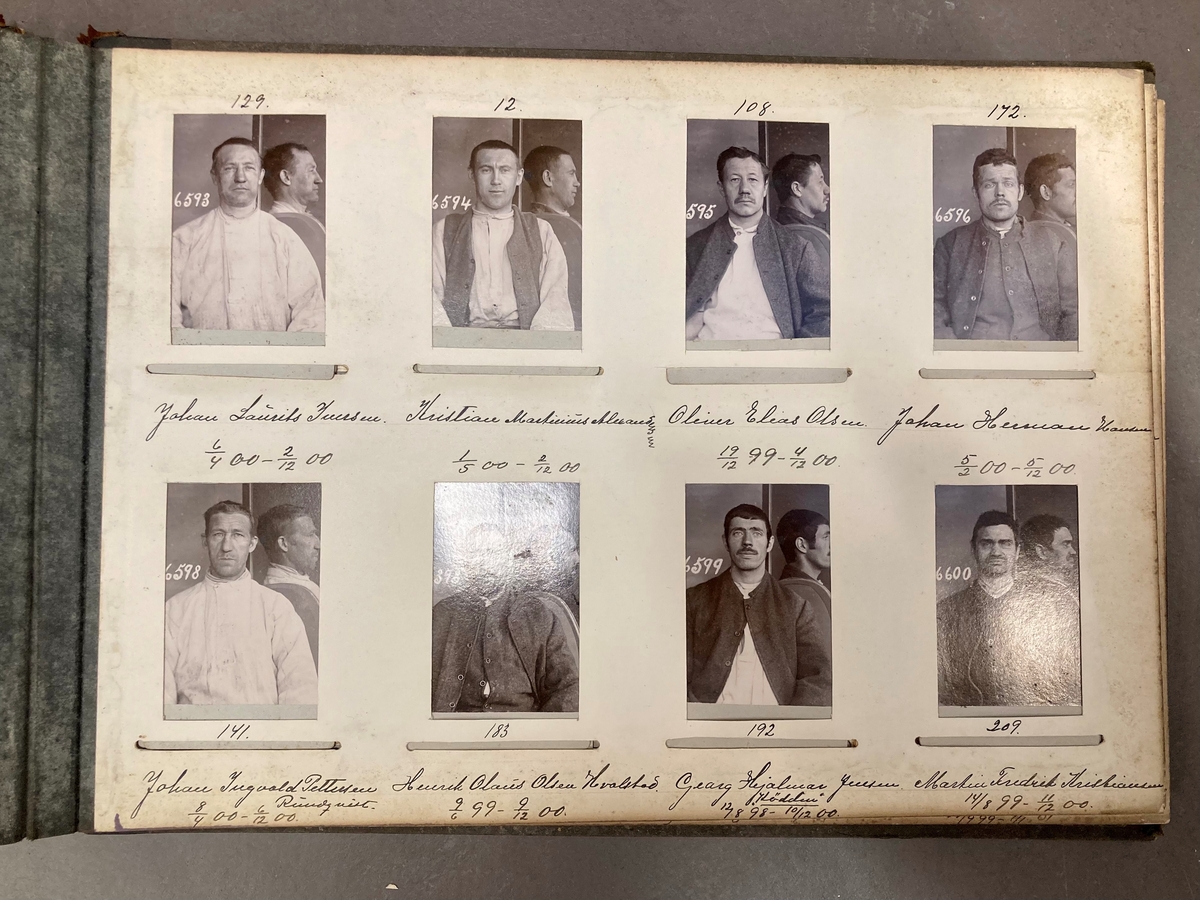 129. 12. 108. 172.
6593 6594 595 6596
Johan Laurits Iversen. Kristian Martinius Oliver Elias Olsen. Johan Herman Hansen
6/4 00 - 2/12 00 1/5 00 - 2/12 00 19/12 99 - 4/12 00. 5/2 00 - 5/12 00.
6598 6599 6600
141. 183 192 209.
Johan Ingvald Pettersen Henrik Olaus Olsen Hvalstad. Georg Hjalmar Jensen Martin Fredrik Kristiansen
8/4 00 - 6/12 00. 9/6 99 - 9/12 00. 12/8 98 - 10/12 00. 14/8 99 - 11/12 00.